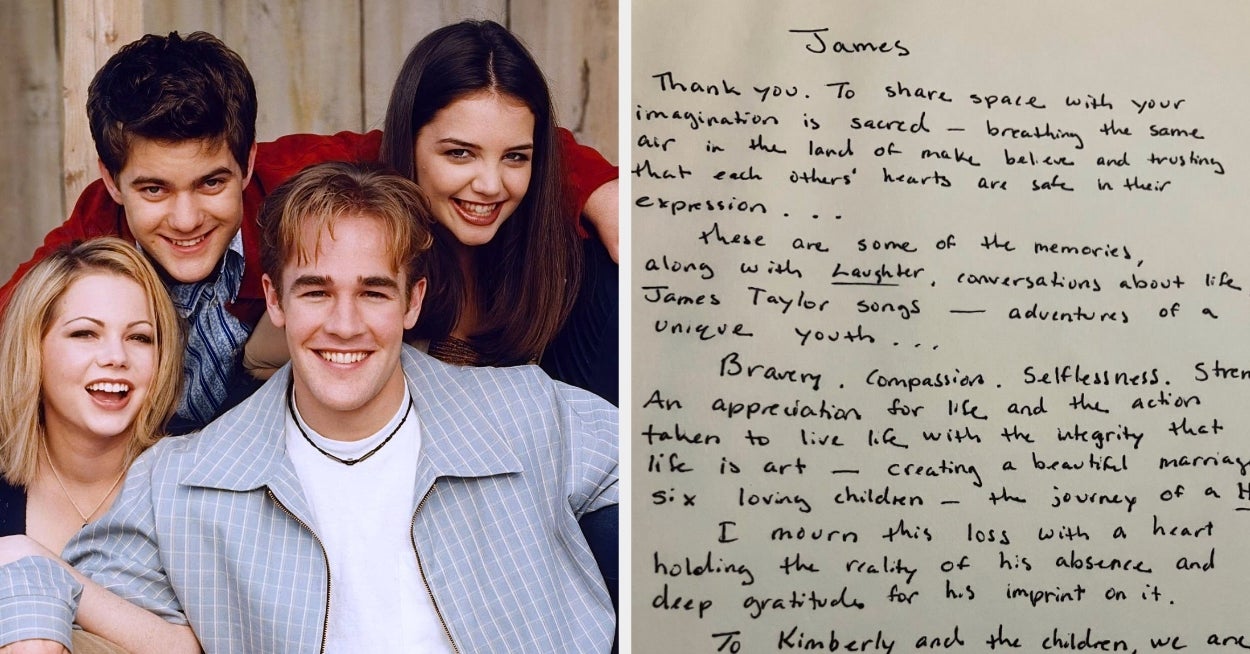 James
Thank you. To share space with your
imagination is sacred — breathing the same
air in the land of make believe and trusting
that each others' hearts are safe in their
expression . . .
these are some of the memories,
along with Laughter, conversations about life
James Taylor songs — adventures of a
unique youth . . .
Bravery. Compassion. Selflessness. Stren
An appreciation for life and the action
taken to live life with the integrity that
life is art — creating a beautiful marriag
six loving children — the journey of a H
I mourn this loss with a heart
holding the reality of his absence and
deep gratitude for his imprint on it.
To Kimberly and the children, we are